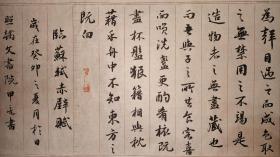 為聲目遇之而成色取
之無禁用之不竭是
造物者之無盡藏也
而吾與子之所共食客喜
而笑洗盞更酌肴核既
盡杯盤狼籍相與枕
藉乎舟中不知東方之
既白
臨蘇軾赤壁賦
歲在癸卯之夏月於日
照翰文書院